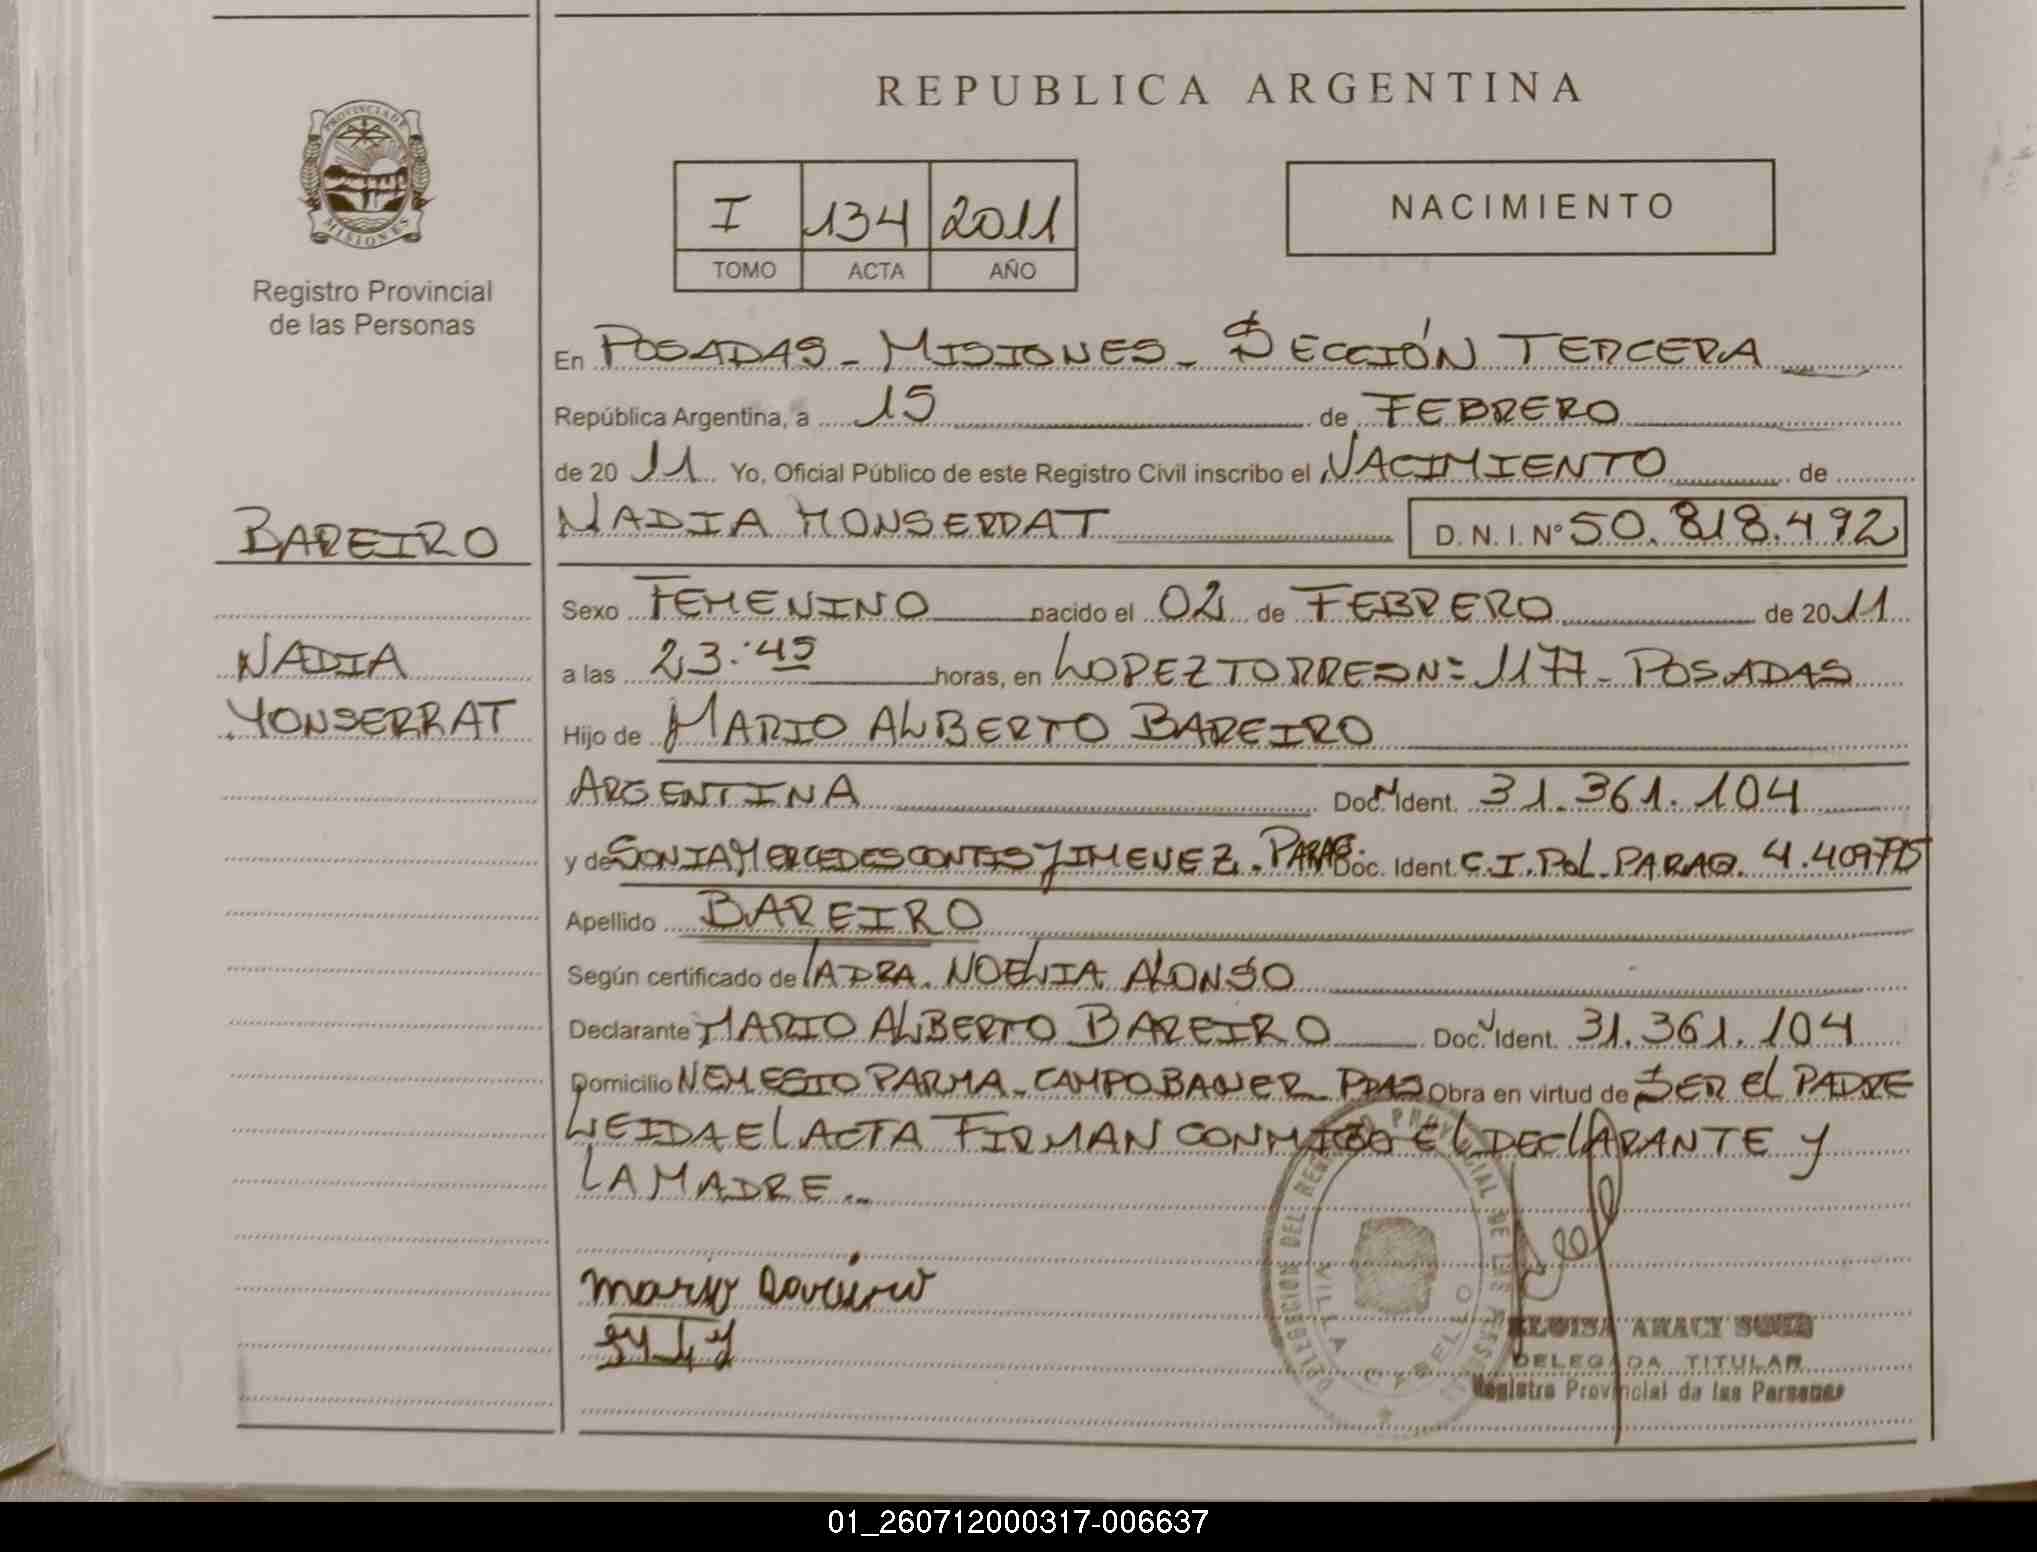 REPUBLICA ARGENTINA
PROVINCIA DE
MISIONES
Registro Provincial
de las Personas
I 134 2011
TOMO ACTA AÑO
NACIMIENTO
En POSADAS - MISIONES - SECCIÓN TERCERA
República Argentina, a 15 de FEBRERO
de 2011 Yo, Oficial Público de este Registro Civil inscribo el NACIMIENTO de
BAREIRO
NADIA MONSERRAT D. N. I. Nº 50.818.492
Sexo FEMENINO nacido el 02 de FEBRERO de 2011
NADIA
a las 23:45 horas, en LOPEZ TORRES Nº 1177 - POSADAS
MONSERRAT
Hijo de MARIO ALBERTO BAREIRO
ARGENTINA Doc. Ident. 31.361.104
y de SONIA MERCEDES JIMENEZ. PARAG. Doc. Ident. C.I. POL. PARAG.
Apellido BAREIRO
Según certificado de LA DRA. NOELIA ALONSO
Declarante MARIO ALBERTO BAREIRO Doc. Ident. 31.361.104
Domicilio NEMESIO PARMA - CAMPO BAUER PDAS Obra en virtud de SER EL PADRE
LEIDA EL ACTA FIRMAN CONMIGO EL DECLARANTE Y
LA MADRE.
Mario Bareiro
DELEGACION DEL REGISTRO PROVINCIAL DE LAS PERSONAS
VILLA CABELLO
ELOISA ARACY
DELEGADA TITULAR
Registro Provincial de las Personas
01_260712000317-006637